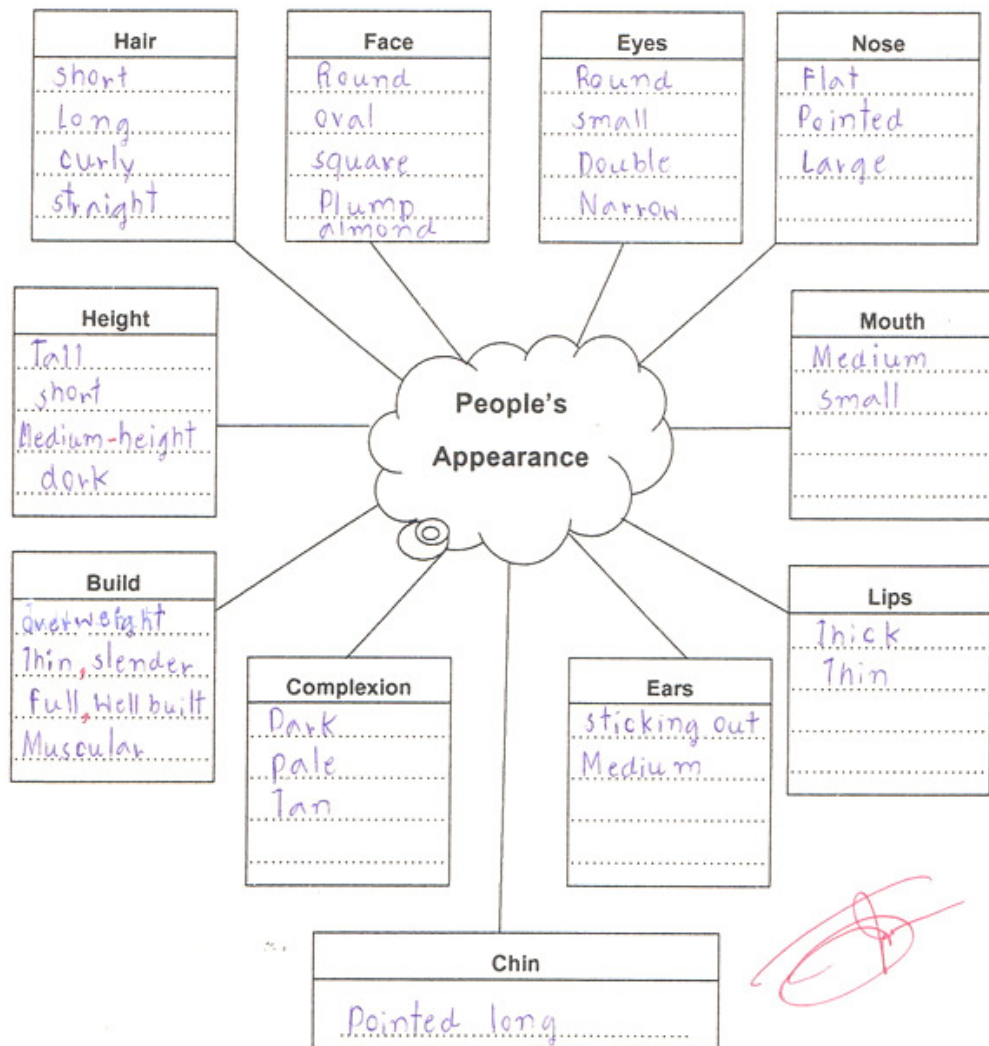 Hair
short
Long
curly
straight
Face
Round
oval
square
Plump
almond
Eyes
Round
small
Double
Narrow
Nose
Flat
Pointed
Large
Height
Tall
short
Medium-height
dork
People's
Appearance
Mouth
Medium
small
Build
overweight
Thin, slender
full, Well built
Muscular
Complexion
Dark
pale
Tan
Ears
sticking out
Medium
Lips
Thick
Thin
Chin
Pointed long